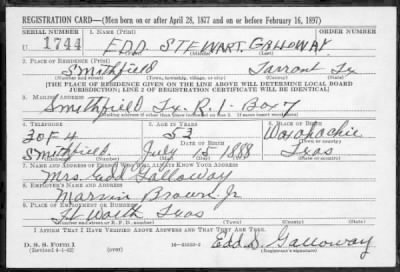 REGISTRATION CARD—(Men born on or after April 28, 1877 and on or before February 16, 1897)
SERIAL NUMBER 1. NAME (Print) ORDER NUMBER
U 1744 EDD STEWART GALLOWAY
2. PLACE OF RESIDENCE (Print)
Smithfield Tarrant Tx
(Number and street) (Town, township, village, or city) (County) (State)
[THE PLACE OF RESIDENCE GIVEN ON THE LINE ABOVE WILL DETERMINE LOCAL BOARD
JURISDICTION; LINE 2 OF REGISTRATION CERTIFICATE WILL BE IDENTICAL]
3. MAILING ADDRESS
Smithfield Tx. R.1- Box 7
4. TELEPHONE 5. AGE IN YEARS 6. PLACE OF BIRTH
30F4 53 Waxahachie
DATE OF BIRTH (Town or county)
Smithfield July 15 1888 Texas
7. NAME AND ADDRESS OF PERSON WHO WILL ALWAYS KNOW YOUR ADDRESS
Mrs. Edd Galloway
8. EMPLOYER'S NAME AND ADDRESS
Marvin Brown Jr
9. PLACE OF EMPLOYMENT OR BUSINESS
Ft Worth Texas
(Number and street or R. F. D. number) (Town) (County) (State)
I AFFIRM THAT I HAVE VERIFIED ABOVE ANSWERS AND THAT THEY ARE TRUE.
D. S. S. Form 1
(Revised 4-1-42)
Edd S. Galloway
(Registrant's signature)